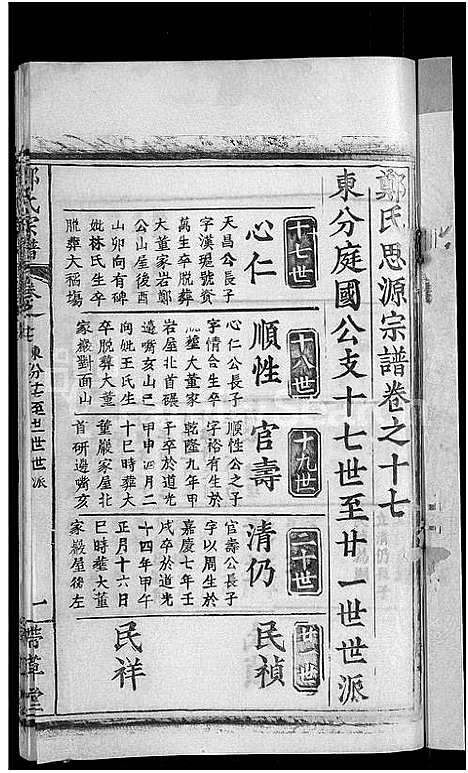 鄭氏思源宗譜卷之十七
東分庭國公支十七世至廿一世世派
十七世
心仁
天昌公長子
字漢珽號資
萬生卒脫葬
大董家岩鄭
公山屋後酉
山卯向有碑
妣林氏生卒
脫葬大福塲
十八世
順性
心仁公長子
字情合生卒
脫葬大董家
岩屋北首磡
邉嘴亥山巳
向妣王氏生
卒脫葬大董
家巖對面山
十九世
官壽
順性公之子
字裕有生於
乾隆九年甲
子卒於道光
甲申四月二
十巳時葬大
董巖家屋北
首研邉嘴亥
二十世
清仍
官壽公長子
字以周生於
嘉慶七年壬
戌卒於道光
十四年甲午
正月十六日
巳時葬大董
家巖屋後左
廿一世
民禎
民祥
鄭氏宗譜
卷之十七
東分十七至廿一世世派
一
帶草堂